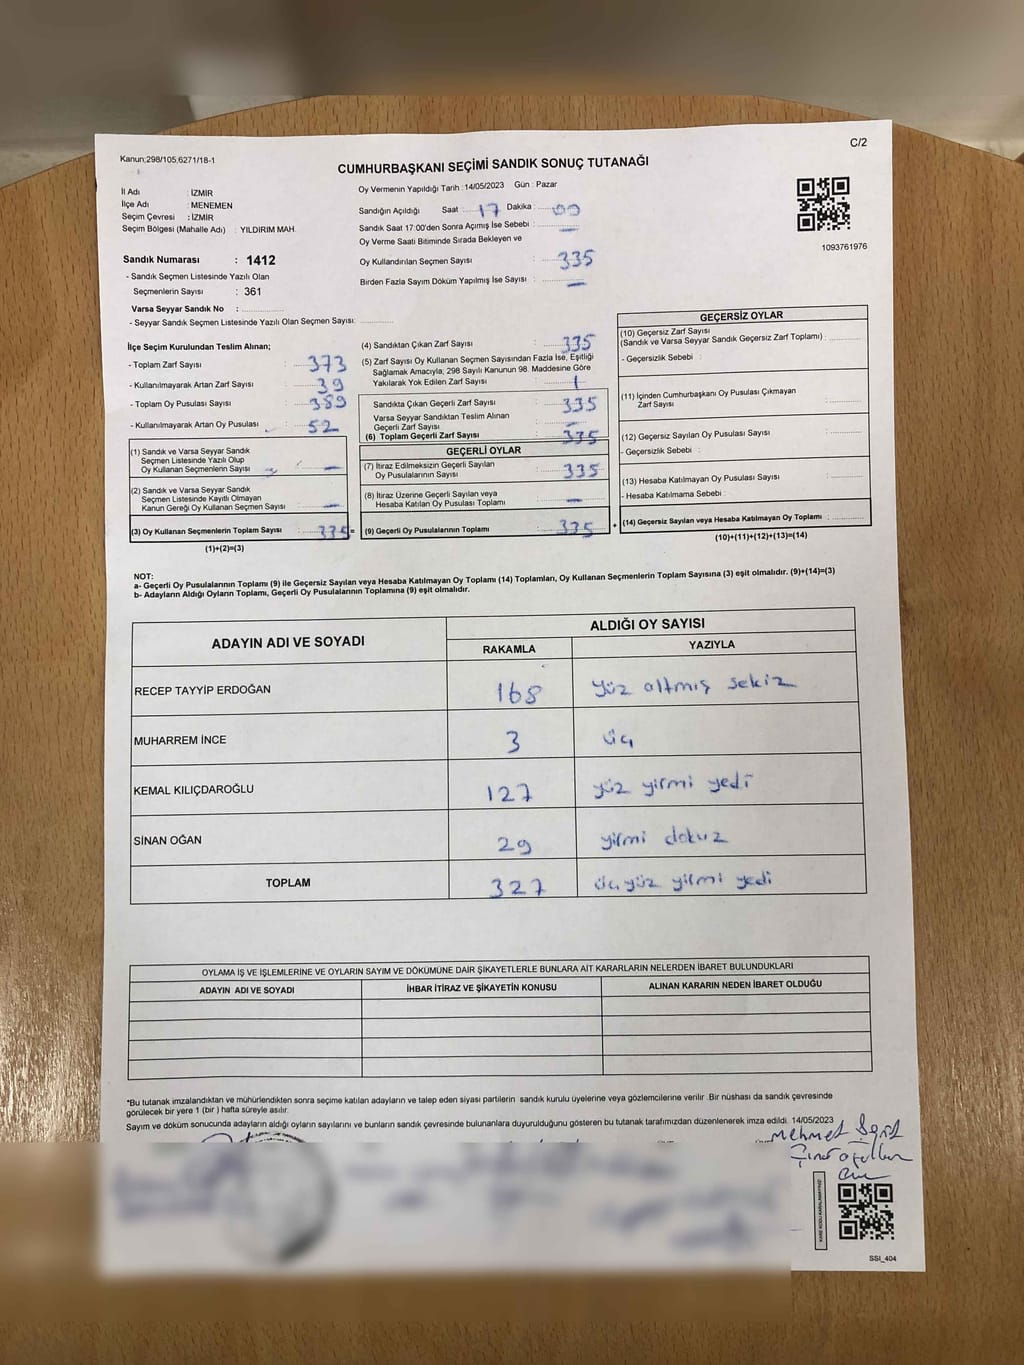 C/2
Kanun;298/105,6271/18-1
CUMHURBAŞKANI SEÇİMİ SANDIK SONUÇ TUTANAĞI
İl Adı : İZMİR
İlçe Adı : MENEMEN
Seçim Çevresi : İZMİR
Seçim Bölgesi (Mahalle Adı) : YILDIRIM MAH.
Oy Vermenin Yapıldığı Tarih :14/05/2023 Gün : Pazar
Sandığın Açıldığı Saat : 17 Dakika : 00
Sandık Saat 17:00'den Sonra Açımış İse Sebebi : —
Oy Verme Saati Bitiminde Sırada Bekleyen ve
Oy Kullandırılan Seçmen Sayısı : 335
Birden Fazla Sayım Döküm Yapılmış İse Sayısı : —
1093761976
Sandık Numarası : 1412
- Sandık Seçmen Listesinde Yazılı Olan
Seçmenlerin Sayısı : 361
Varsa Seyyar Sandık No :
- Seyyar Sandık Seçmen Listesinde Yazılı Olan Seçmen Sayısı:
İlçe Seçim Kurulundan Teslim Alınan;
- Toplam Zarf Sayısı : 373
- Kullanılmayarak Artan Zarf Sayısı : 39
- Toplam Oy Pusulası Sayısı : 389
- Kullanılmayarak Artan Oy Pusulası : 52
(1) Sandık ve Varsa Seyyar Sandık
Seçmen Listesinde Yazılı Olup
Oy Kullanan Seçmenlerin Sayısı : —
(2) Sandık ve Varsa Seyyar Sandık
Seçmen Listesinde Kayıtlı Olmayan
Kanun Gereği Oy Kullanan Seçmen Sayısı : —
(3) Oy Kullanan Seçmenlerin Toplam Sayısı : 335 =
(1)+(2)=(3)
(4) Sandıktan Çıkan Zarf Sayısı : 335
(5) Zarf Sayısı Oy Kullanan Seçmen Sayısından Fazla İse, Eşitliği
Sağlamak Amacıyla; 298 Sayılı Kanunun 98. Maddesine Göre
Yakılarak Yok Edilen Zarf Sayısı : 1
Sandıkta Çıkan Geçerli Zarf Sayısı : 335
Varsa Seyyar Sandıktan Teslim Alınan
Geçerli Zarf Sayısı : —
(6) Toplam Geçerli Zarf Sayısı : 335
GEÇERLİ OYLAR
(7) İtiraz Edilmeksizin Geçerli Sayılan
Oy Pusulalarının Sayısı : 335
(8) İtiraz Üzerine Geçerli Sayılan veya
Hesaba Katılan Oy Pusulası Toplamı : —
(9) Geçerli Oy Pusulalarının Toplamı : 335 +
GEÇERSİZ OYLAR
(10) Geçersiz Zarf Sayısı
(Sandık ve Varsa Seyyar Sandık Geçersiz Zarf Toplamı) :
- Geçersizlik Sebebi :
(11) İçinden Cumhurbaşkanı Oy Pusulası Çıkmayan
Zarf Sayısı :
(12) Geçersiz Sayılan Oy Pusulası Sayısı :
- Geçersizlik Sebebi :
(13) Hesaba Katılmayan Oy Pusulası Sayısı :
- Hesaba Katılmama Sebebi :
(14) Geçersiz Sayılan veya Hesaba Katılmayan Oy Toplamı :
(10)+(11)+(12)+(13)=(14)
NOT:
a- Geçerli Oy Pusulalarının Toplamı (9) ile Geçersiz Sayılan veya Hesaba Katılmayan Oy Toplamı (14) Toplamları, Oy Kullanan Seçmenlerin Toplam Sayısına (3) eşit olmalıdır. (9)+(14)=(3)
b- Adayların Aldığı Oyların Toplamı, Geçerli Oy Pusulalarının Toplamına (9) eşit olmalıdır.
ADAYIN ADI VE SOYADI ALDIĞI OY SAYISI
RAKAMLA YAZIYLA
RECEP TAYYİP ERDOĞAN 168 yüz altmış sekiz
MUHARREM İNCE 3 üç
KEMAL KILIÇDAROĞLU 127 yüz yirmi yedi
SİNAN OĞAN 29 yirmi dokuz
TOPLAM 327 üçyüz yirmi yedi
OYLAMA İŞ VE İŞLEMLERİNE VE OYLARIN SAYIM VE DÖKÜMÜNE DAİR ŞİKAYETLERLE BUNLARA AİT KARARLARIN NELERDEN İBARET BULUNDUKLARI
ADAYIN ADI VE SOYADI İHBAR İTİRAZ VE ŞİKAYETİN KONUSU ALINAN KARARIN NEDEN İBARET OLDUĞU
*Bu tutanak imzalandıktan ve mühürlendikten sonra seçime katılan adayların ve talep eden siyasi partilerin sandık kurulu üyelerine veya gözlemcilerine verilir .Bir nüshası da sandık çevresinde
görülecek bir yere 1 (bir ) hafta süreyle asılır.
Sayım ve döküm sonucunda adayların aldığı oyların sayılarını ve bunların sandık çevresinde bulunanlara duyurulduğunu gösteren bu tutanak tarafımızdan düzenlenerek imza edildi. 14/05/2023
Mehmet
KARE KODU KARALAMAYINIZ!
SSI_404